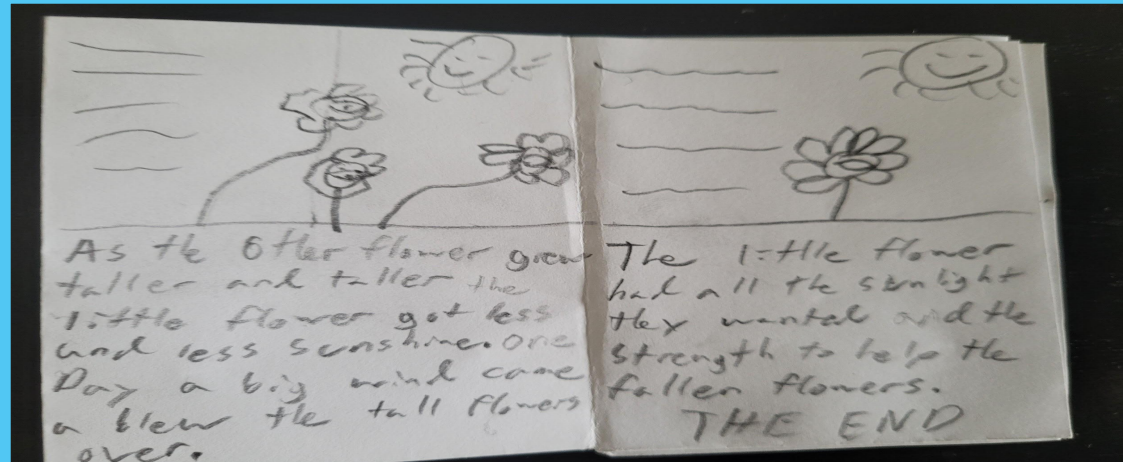 As the Other flower grew
taller and taller the
little flower got less
and less sunshine. One
Day a big wind came
a blew the tall flowers
over.
The little flower
had all the sunlight
they wanted and the
strength to help the
fallen flowers.
THE END